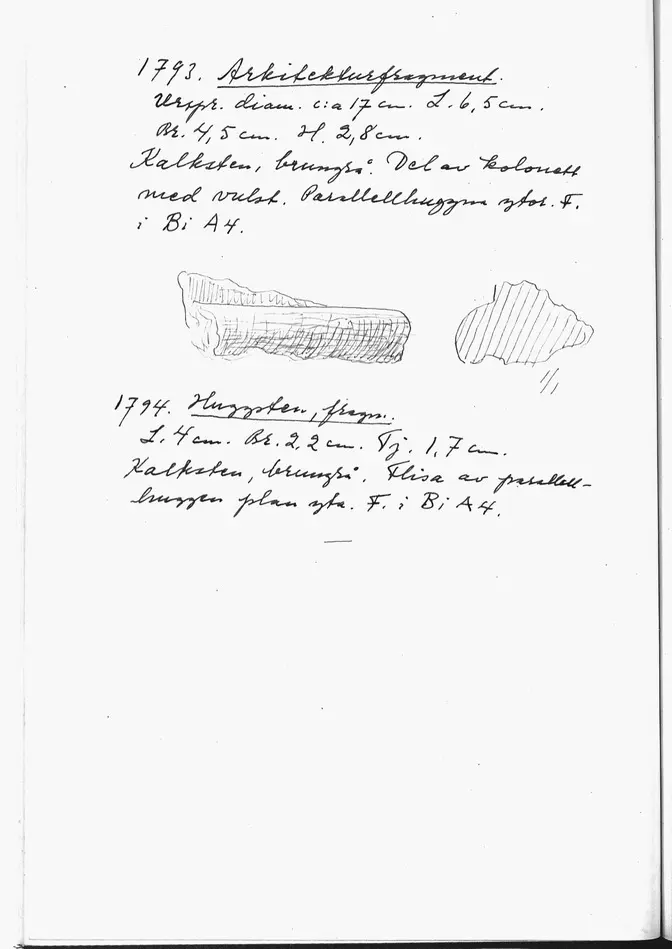 1793. Arkitekturfragment.
Urspr. diam. c:a 17 cm. L. 6,5 cm.
Br. 4,5 cm. H. 2,8 cm.
Kalksten, brungrå. Del av kolonett
med vulst. Parallellhuggna ytor. F.
i Bi A4.
1/1
1794. Huggsten, fragm.
L. 4 cm. Br. 2,2 cm. Tj. 1,7 cm.
Kalksten, brungrå. Flisa av parallell-
huggen plan yta. F. i Bi A4.